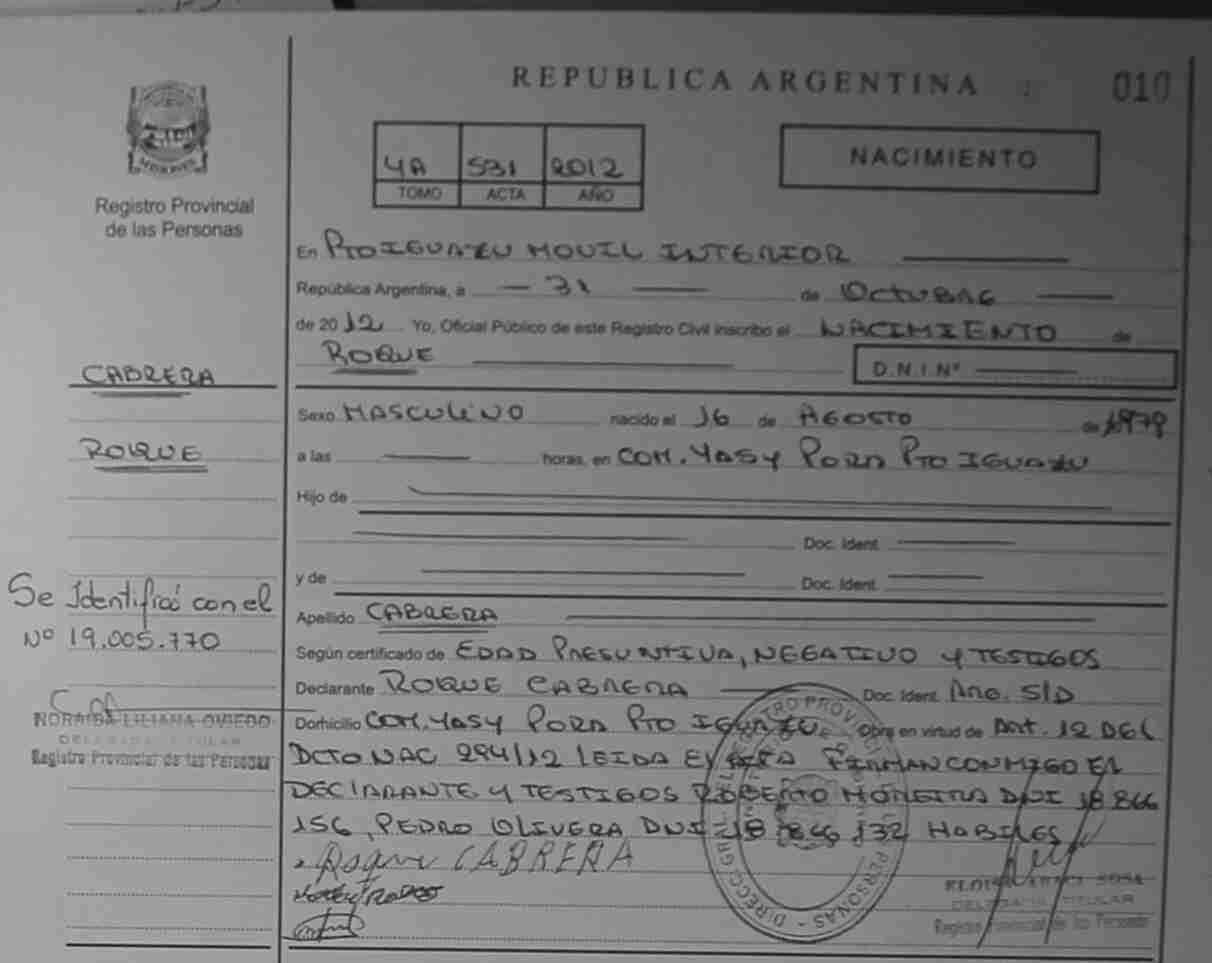 REPUBLICA ARGENTINA
010
MISIONES
Registro Provincial
de las Personas
4A 531 2012
TOMO ACTA AÑO
NACIMIENTO
En PTO IGUAZU MOVIL INTERIOR
República Argentina, a 31 de OCTUBRE
de 2012 Yo, Oficial Público de este Registro Civil inscribo el NACIMIENTO de
ROQUE
D.N.I.Nº
CABRERA
ROQUE
Sexo MASCULINO nacido el 16 de AGOSTO de 1979
a las horas, en COM. YASY PORA PTO IGUAZU
Hijo de
Doc. Ident.
y de Doc. Ident.
Apellido CABRERA
Según certificado de EDAD PRESUNTIVA, NEGATIVO Y TESTIGOS
Declarante ROQUE CABRERA Doc. Ident. ARG. S/D
Domicilio COM. YASY PORA PTO IGUAZU Obra en virtud de ART. 12 DEL
DCTO NAC 294/12 LEIDA EL ACTA FIRMAN CONMIGO EL
DECLARANTE Y TESTIGOS ROBERTO MOREIRA DNI 18 866
156, PEDRO OLIVERA DNI 18 866 132 HABILES
Roque CABRERA
Se Identificó con el
Nº 19.005.770
NORMBA LILIANA OVIEDO
DELEGADA TITULAR
Registro Provincial de las Personas
SOSA
DELEGADA TITULAR
Registro Provincial de las Personas